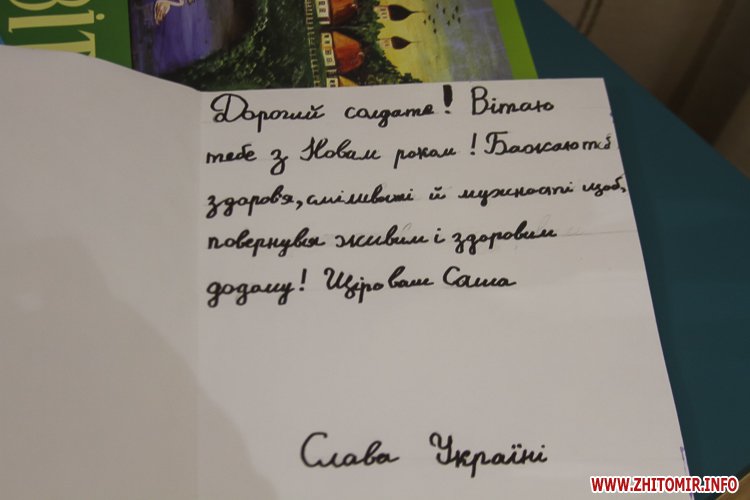 ВІТ
Дорогий солдате! Вітаю
тебе з Новим роком! Бажаю тобі
здоров'я, сміливості й мужності щоб
повернувся живим і здоровим
додому! Щіро ваш Саша
Слава Україні
WWW.ZHITOMIR.INFO